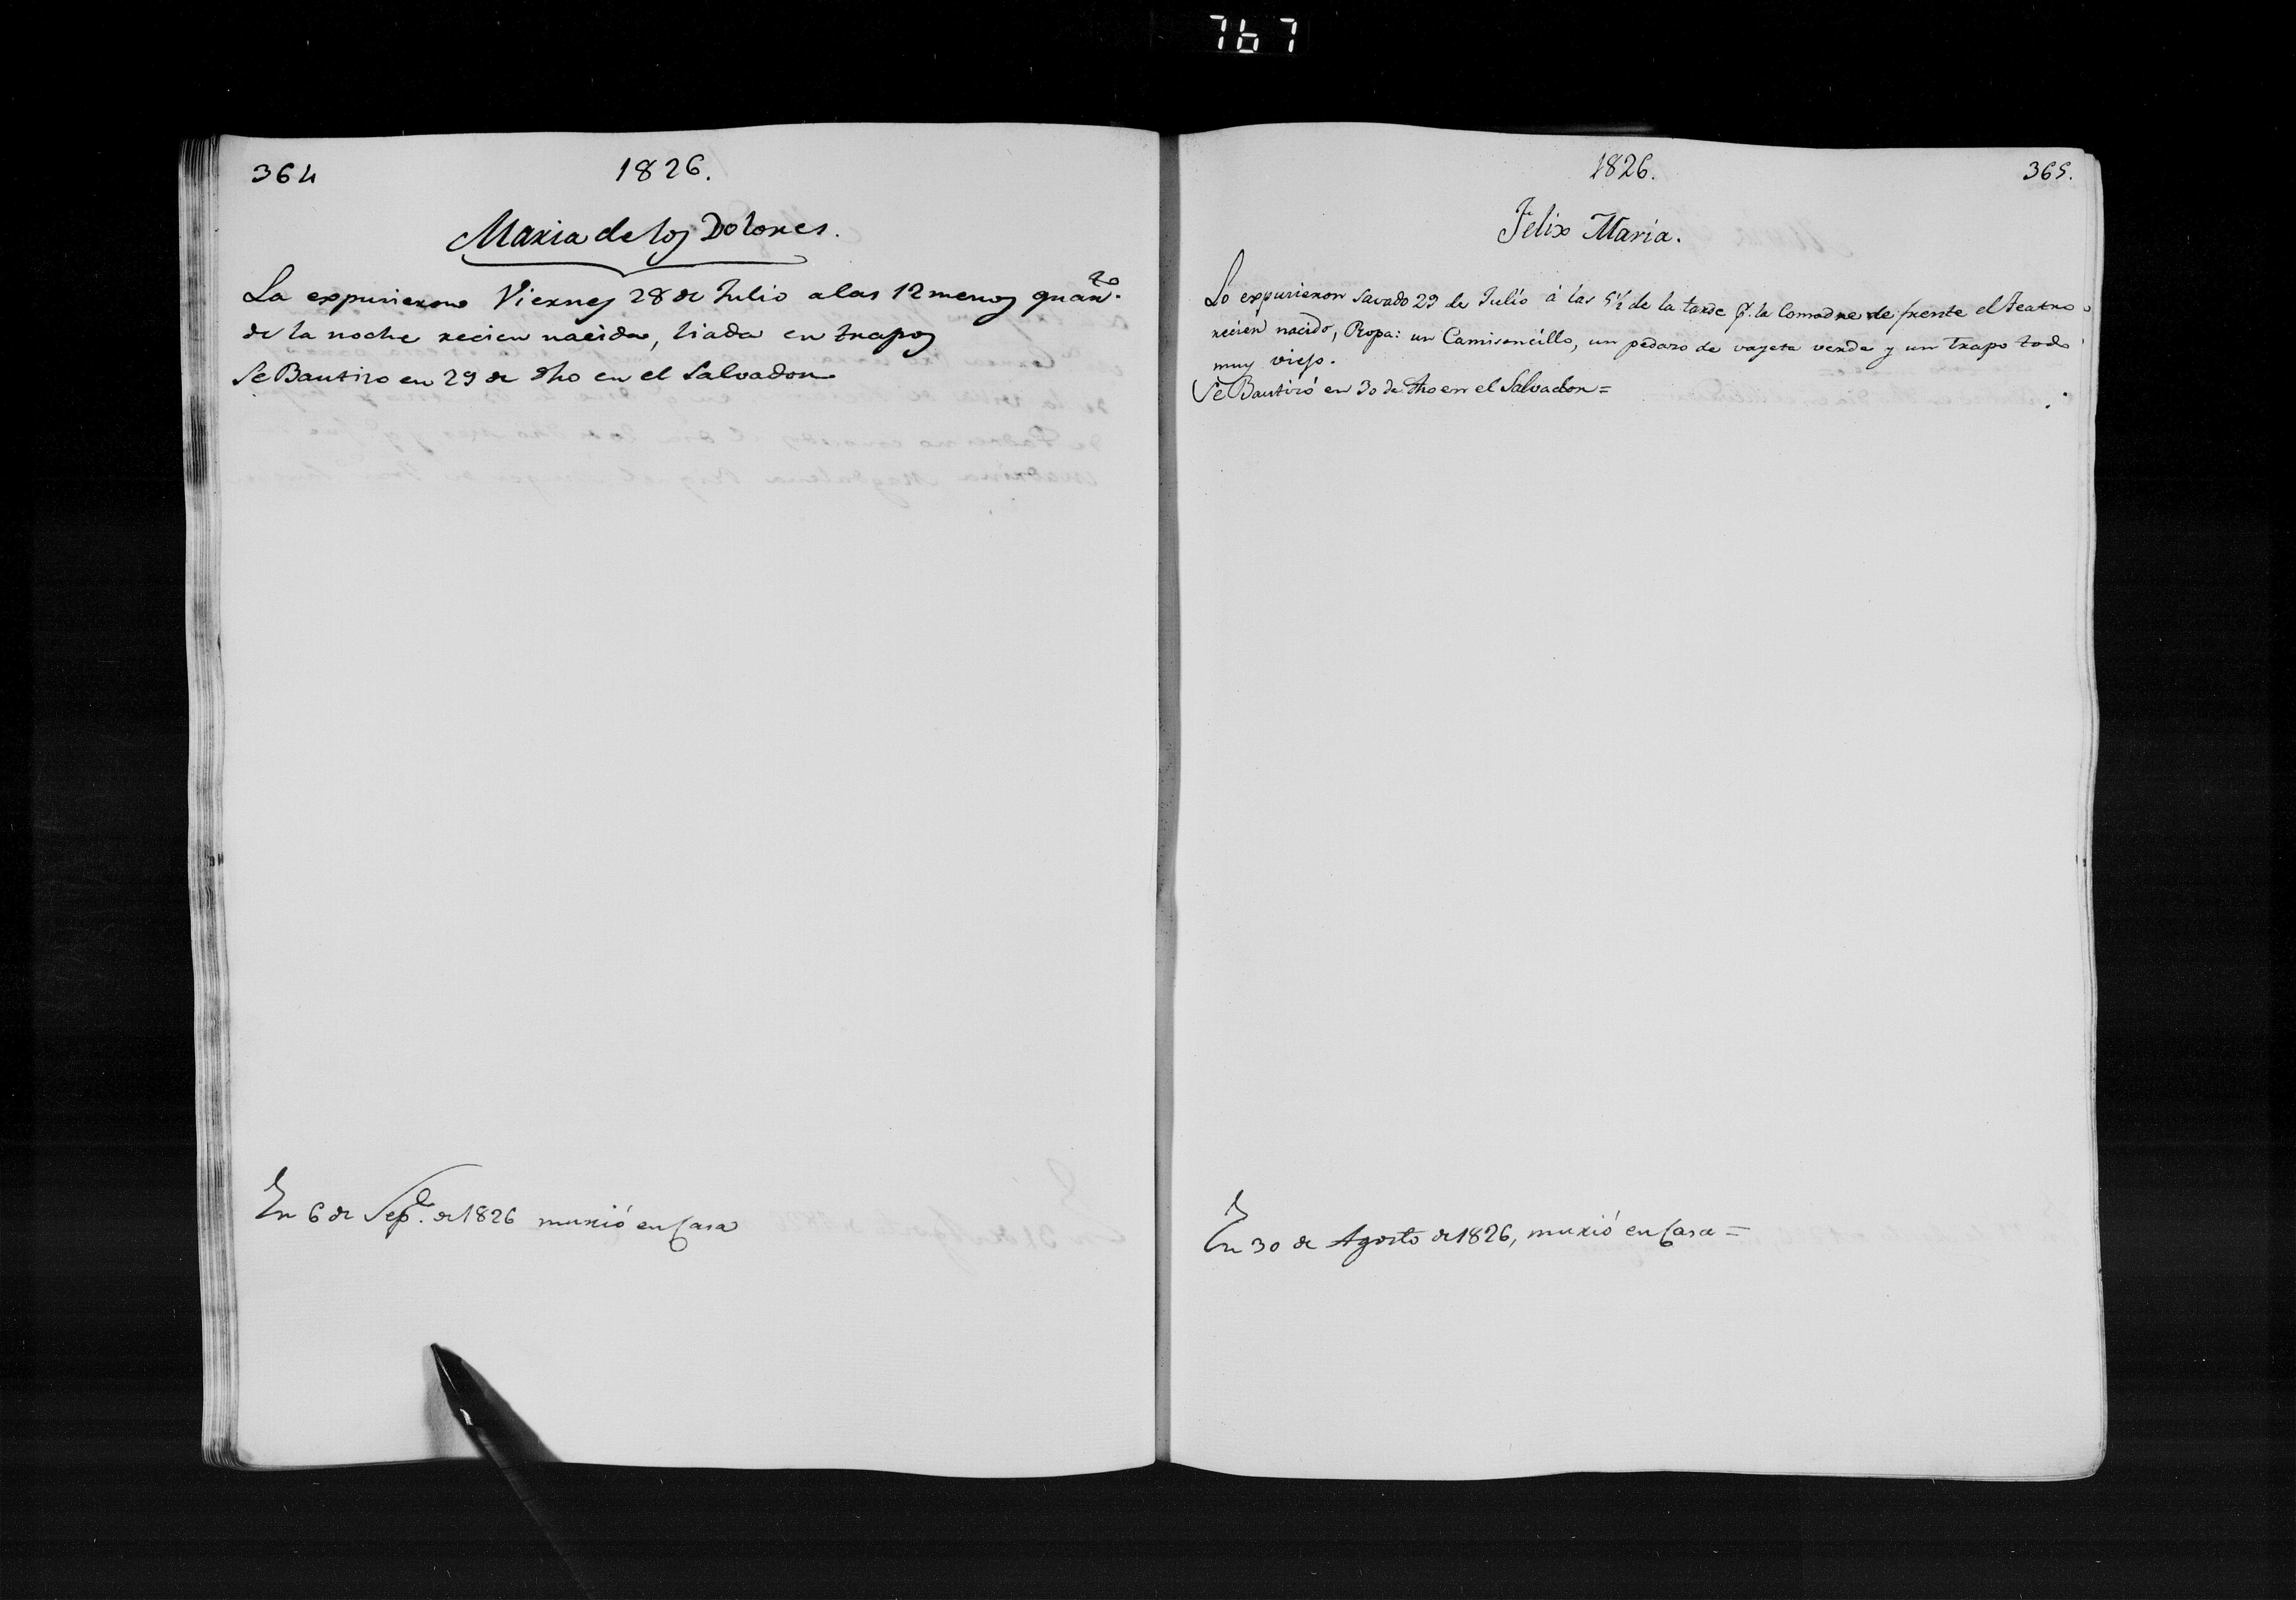 767
364
1826.
Maria de los Dolores.
La expusieron Viernes 28 de Julio a las 12 menos quarto.
de la noche recien nacida, liada en trapos
Se Bautizo en 29 de dho en el Salvador
En 6 de Sepe. de 1826 murió en Casa
1826.
365.
Felix Maria.
Lo expusieron Savado 29 de Julio á las 5½ de la tarde p. la Comadre de frente el Teatro
recien nacido, Ropa: un Camisoncillo, un pedazo de vayeta verde y un trapo todo
muy viejo.
Se Bautizó en 30 de dho en el Salvador =
En 30 de Agosto de 1826, murió en Casa =